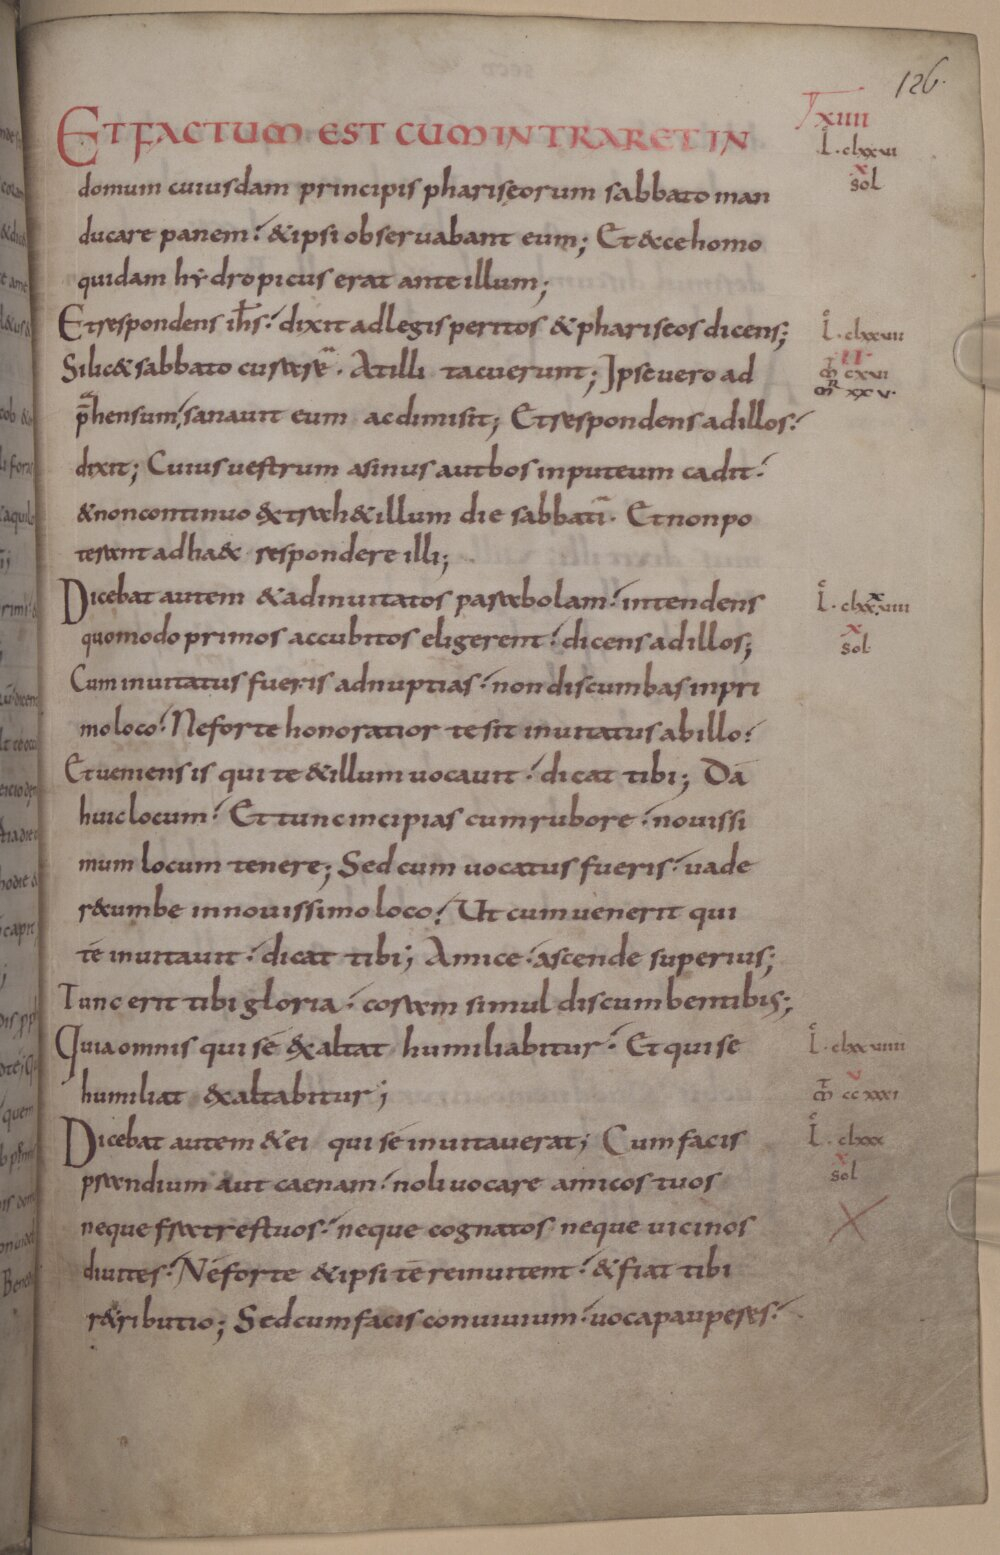 126.
ET FACTUM EST CUM INTRARET IN
xiiii
L. clxxvi
x
sol
domum cuiusdam principis phariseorum sabbato man
ducare panem. & ipsi observabant eum; Et ecce homo
quidam hydropicus erat ante illum;
Et respondens ihs. dixit ad legis peritos & phariseos dicens;
L. clxxvii
Si lic& sabbato curare. At illi tacuerunt; Ipse vero ad
m cxvi
p̄hensum, sanavit eum ac dimisit; Et respondens ad illos.
m xxv.
dixit; Cuius vestrum asinus aut bos in puteum cadit.
& non continuo extrah& illum die sabbati. Et non po
terant ad haec respondere illi;
Dicebat autem & ad invitatos parabolam. intendens
L. clxxviii
x
sol
quomodo primos accubitos eligerent. dicens ad illos;
Cum invitatus fueris ad nuptias. non discumbas in pri
mo loco. Ne forte honoratior te sit invitatus ab illo.
Et veniens is qui te & illum vocavit. dicat tibi; Da
huic locum. Et tunc incipias cum rubore. novissi
mum locum tenere; Sed cum vocatus fueris. vade
recumbe in novissimo loco. Ut cum venerit qui
te invitavit. dicat tibi; Amice. ascende superius;
Tunc erit tibi gloria. coram simul discumbentibus;
Quia omnis qui se exaltat humiliabitur. Et qui se
L. clxxviiii
v
humiliat exaltabitur;
m ccxxxi
Dicebat autem & ei qui se invitaverat; Cum facis
L. clxxx
x
sol
prandium aut caenam. noli vocare amicos tuos
neque fratres tuos. neque cognatos neque vicinos
divites. Ne forte & ipsi te reinvitent. & fiat tibi
r&ributio; Sed cum facis convivium. voca pauperes.